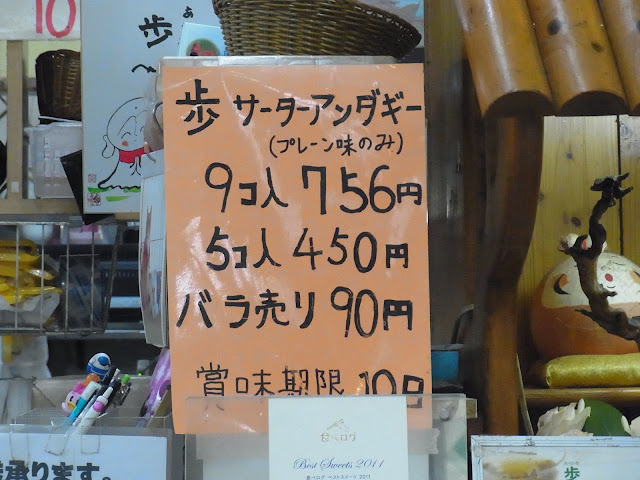 10
歩
歩 サーターアンダギー
(プレーン味のみ)
9コ入 756円
5コ入 450円
バラ売り 90円
賞味期限 10日
食べログ
Best Sweets 2011
食べログ ベストスイーツ 2011
承ります。
歩